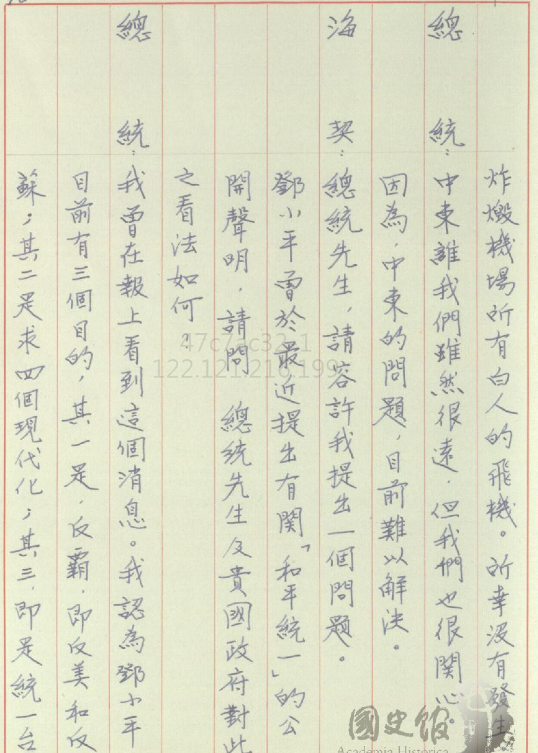 炸燬機場所有白人的飛機。所幸沒有發生
總統：中東離我們雖然很遠，但我們也很關心
因為，中東的問題，目前難以解決。
海契：總統先生，請容許我提出一個問題。
鄧小平曾於最近提出有関「和平統一」的公
開聲明，請問　總統先生及貴國政府對此
之看法如何？
總統：我曾在報上看到這個消息。我認為鄧小平
目前有三個目的，其一是，反霸，即反美和反
蘇；其二是求四個現代化；其三，即是統一台
122.121.216.199
國史館
Academia Historica